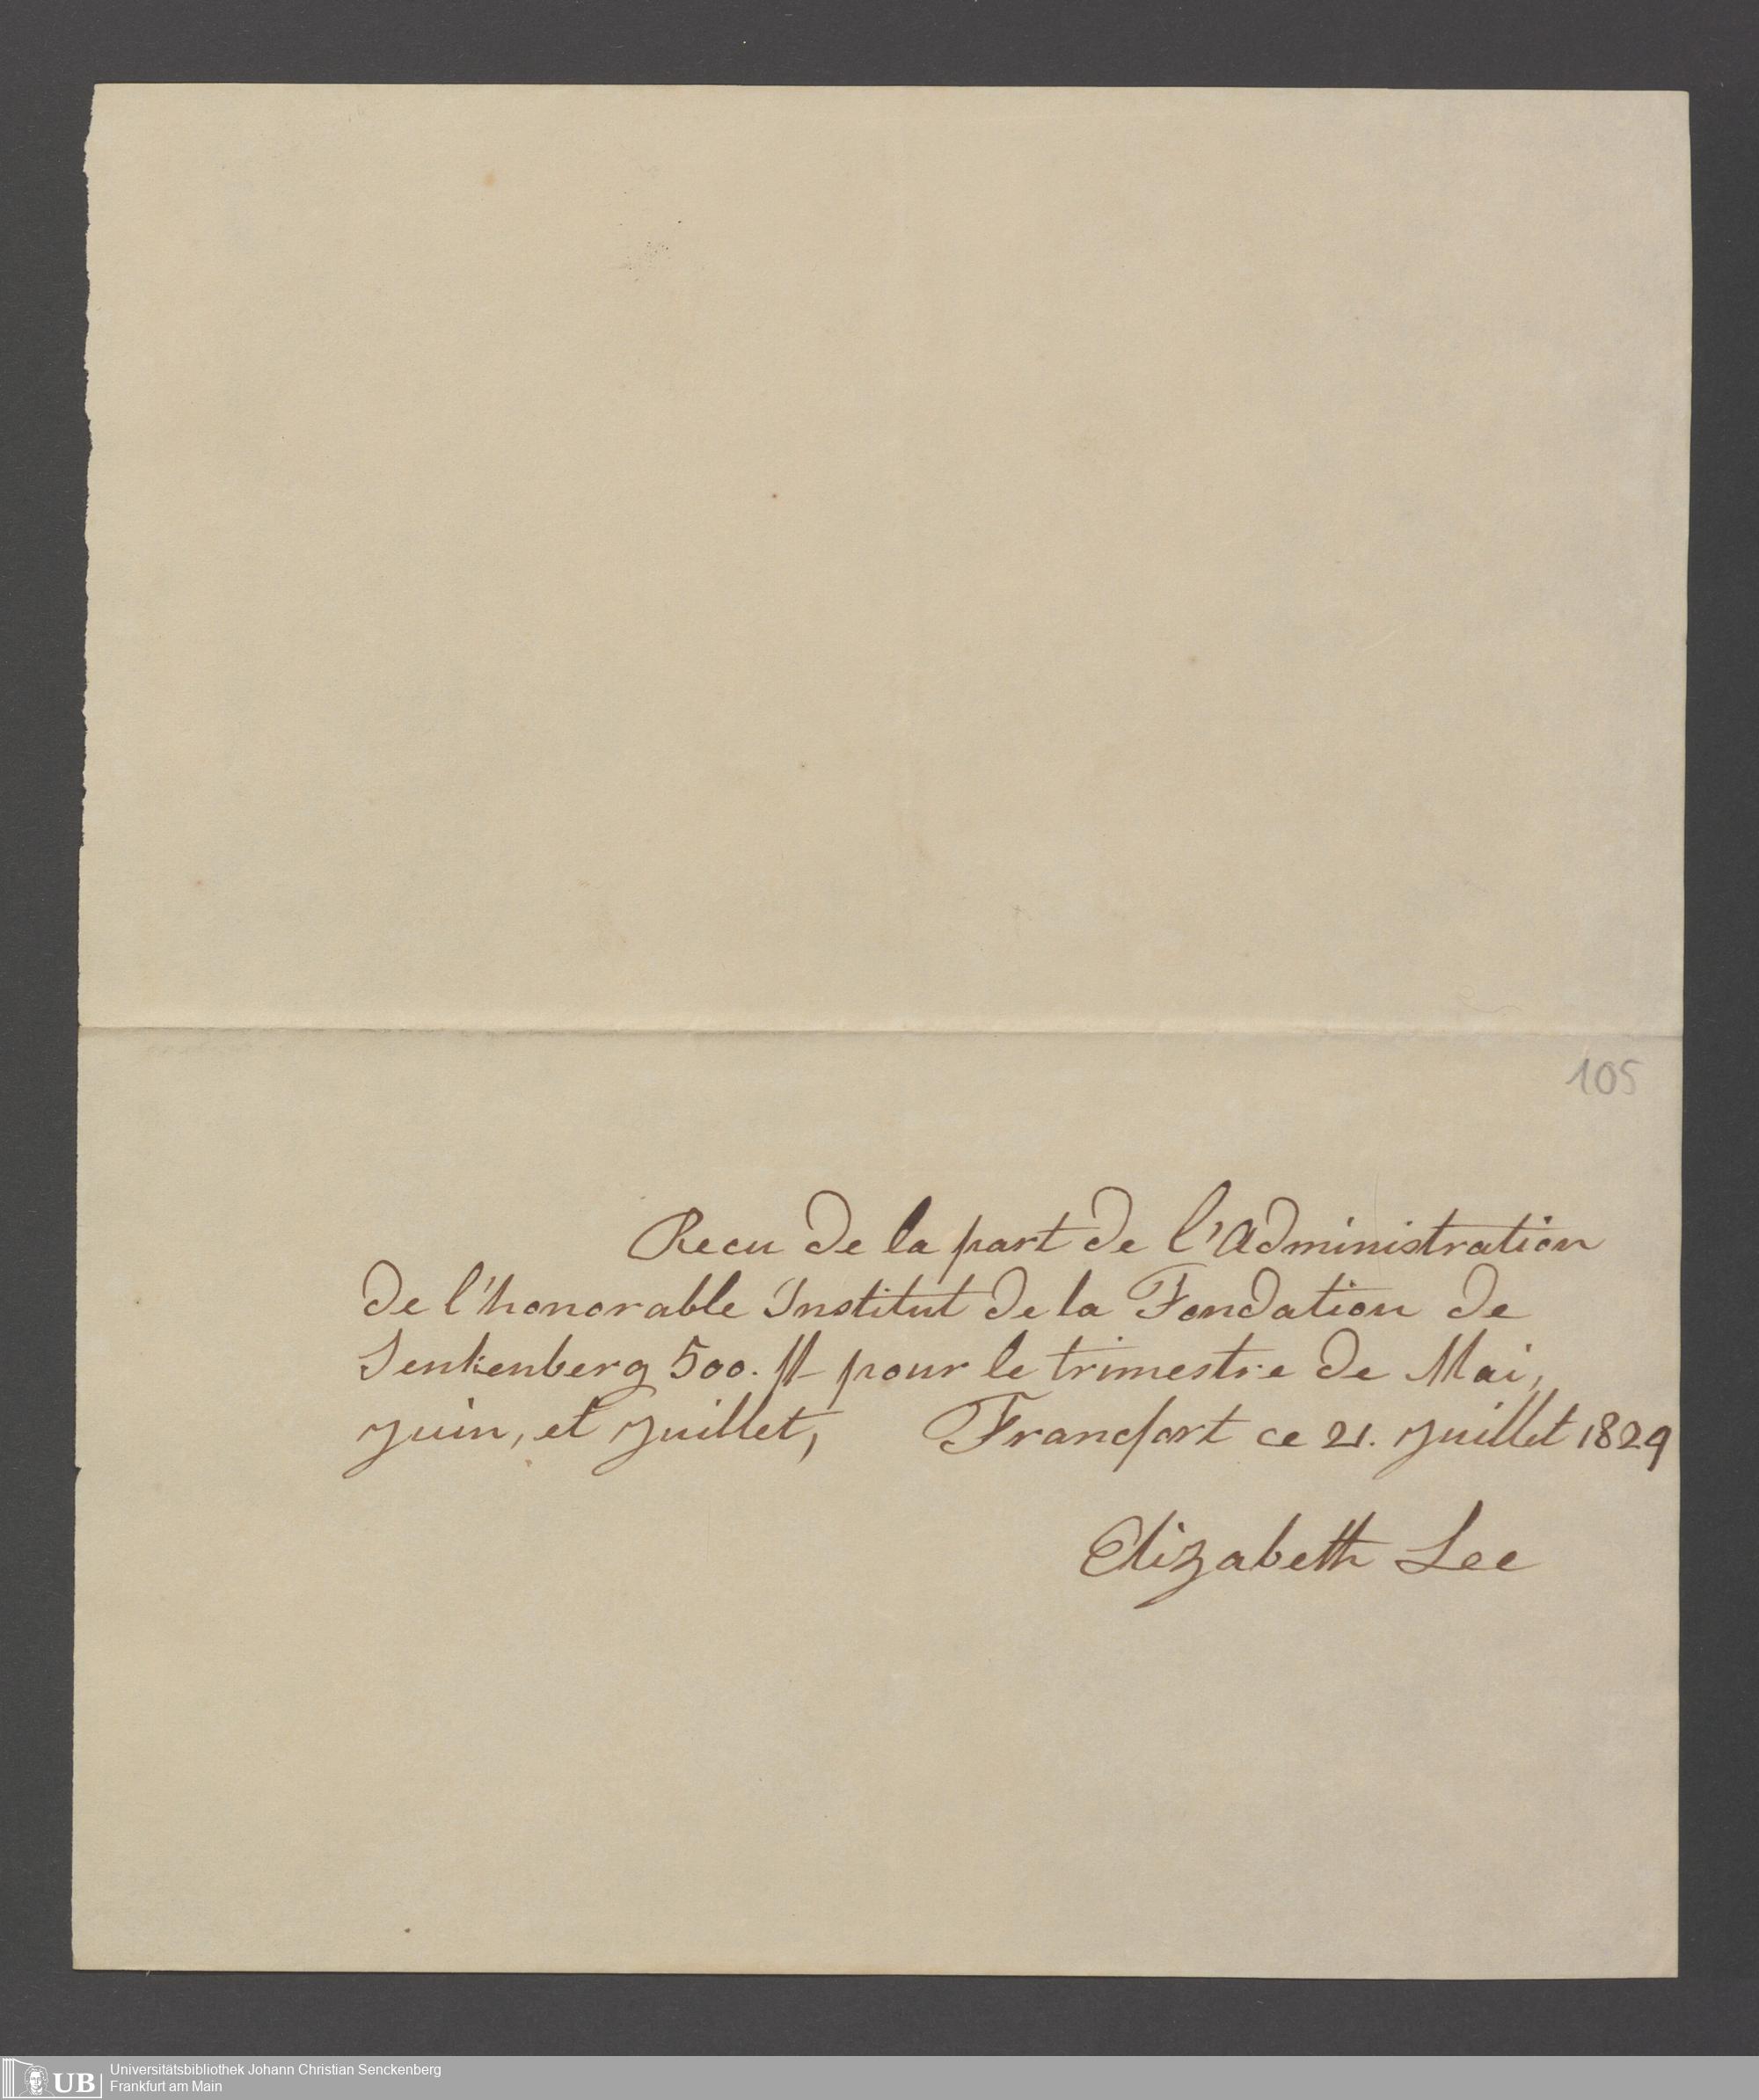 105
Recu de la part de l'Administration
de l'honorable Institut de la Fondation de
Senkenberg 500. fl pour le trimestre de Mai,
Juin, et Juillet, Francfort ce 21. Juillet 1829
Elizabeth Lee
UB
Universitätsbibliothek Johann Christian Senckenberg
Frankfurt am Main